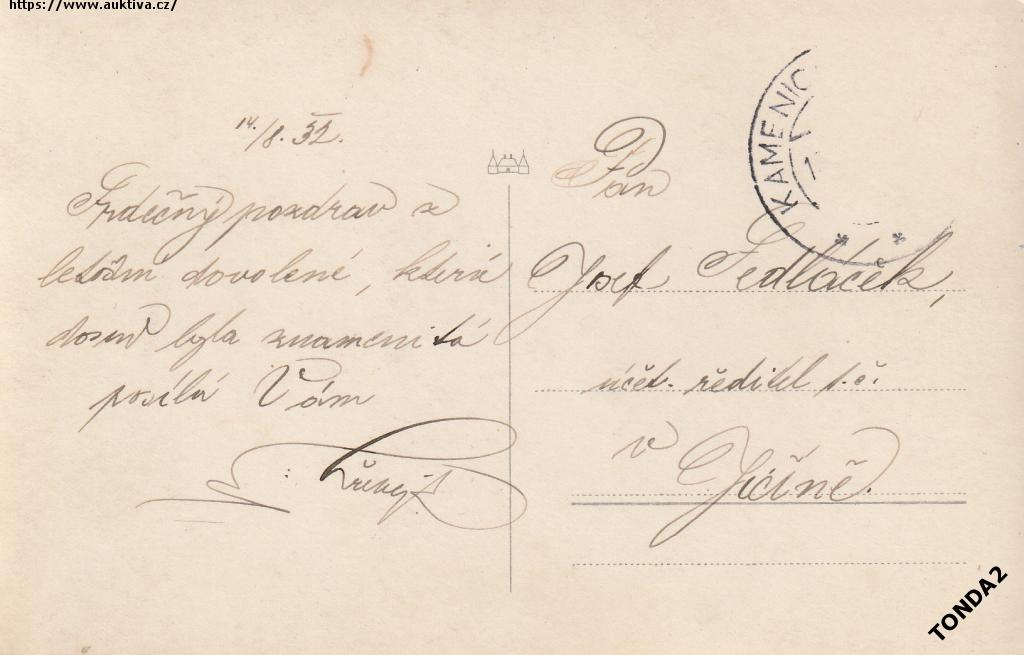 https://www.auktiva.cz/
14./8. 32.
Srdečný pozdrav z
letošní dovolené, která
dosud byla znamenitá
posílá Vám
Pan
Josef Sedláček,
účet. ředitel s.č.
v
Jičíně.
KAMENIC
TONDA2